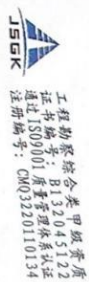 JSGK
工程勘察综合类甲级资质
证书编号：B132045122
通过ISO9001质量管理体系认证
注册编号：CMQ3220110134